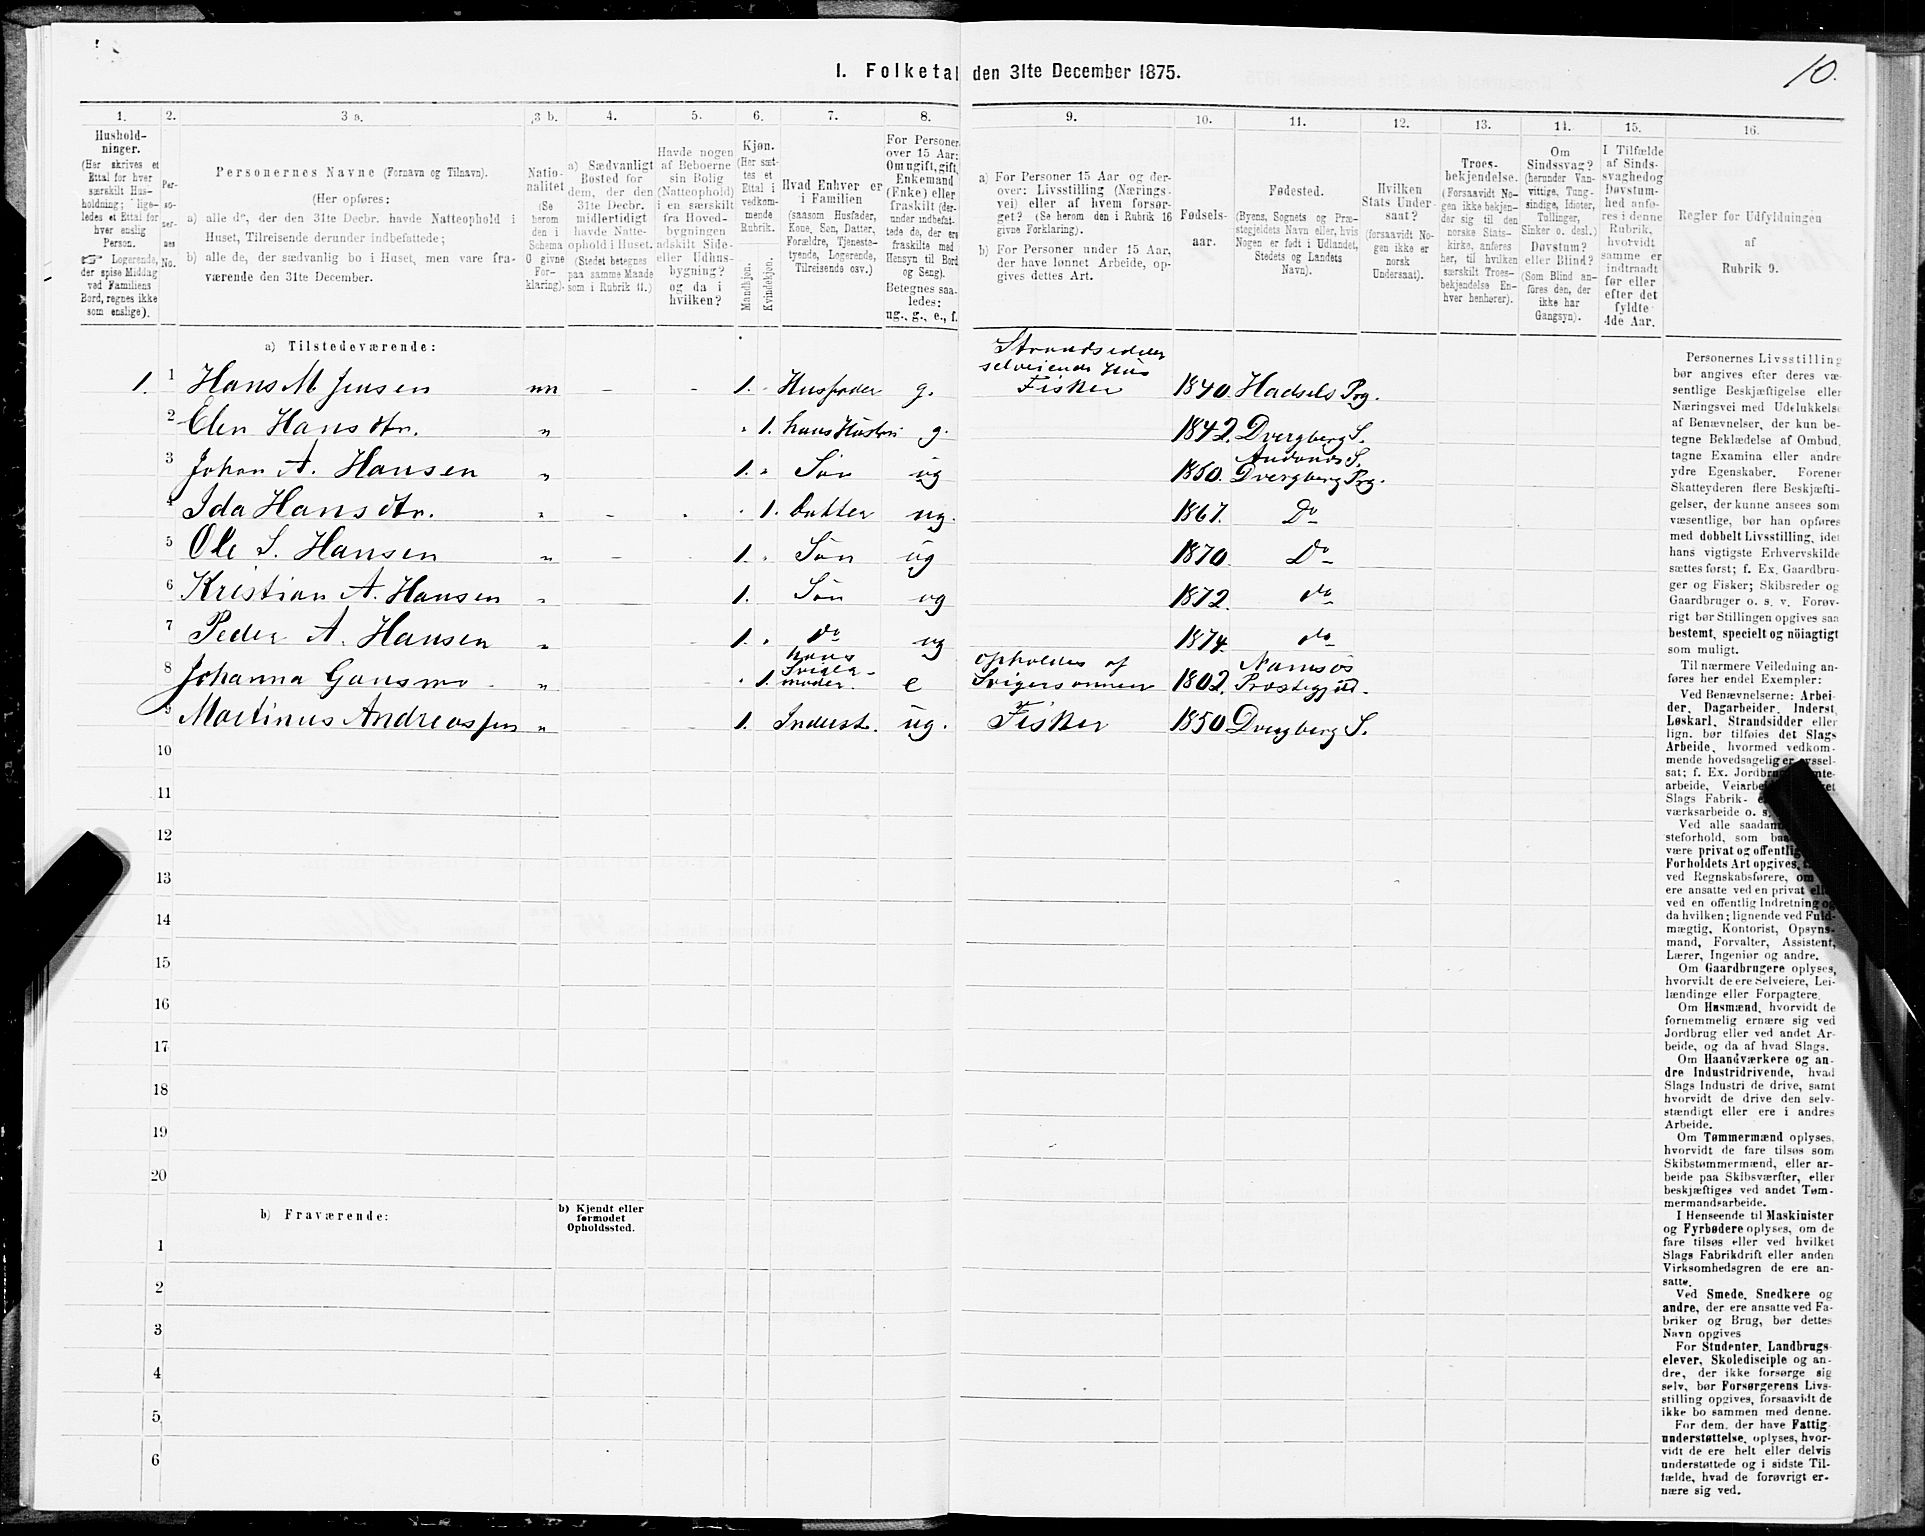 10.
1. Folketal den 31te December 1875.
1. 2. 3 a. 3 b. 4. 5. 6. 7. 8. 9. 10. 11. 12. 13. 14. 15. 16.
Hushold-
ninger.
(Her skrives et
Ettal for hver
særskilt Hus-
holdning; lige-
ledes et Ettal for
hver enslig
Person.
☞ Logerende,
der spise Middag
ved Familiens
Bord, regnes ikke
som enslige).
Per-
so-
ner-
nes
No.
Personernes Navne (Fornavn og Tilnavn).
(Her opføres:
a) alle de, der den 31te Decbr. havde Natteophold i
Huset, Tilreisende derunder indbefattede;
b) alle de, der sædvanlig bo i Huset, men vare fra-
værende den 31te December.
Natio-
nalitet
(Se
herom
den i
Schema
O givne
For-
klaring).
a) Sædvanligt
Bosted for
dem, der den
31te Decbr.
midlertidigt
havde Natte-
ophold i Huset.
(Stedet betegnes
paa samme Maade
som i Rubrik 11.)
Havde nogen
af Beboerne
sin Bolig
(Natteophold)
i en særskilt
fra Hoved-
bygningen
adskilt Side-
eller Udhus-
bygning?
og da i
hvilken?
Kjøn.
(Her sæt-
tes et
Ettal i
vedkom-
mende
Rubrik.
Mandkjøn.
Kvindekjøn.
Hvad Enhver er
i Familien
(saasom Husfader,
Kone, Søn, Datter,
Forældre, Tjeneste-
tyende, Logerende,
Tilreisende osv.)
For Personer
over 15 Aar:
Om ugift, gift,
Enkemand
(Enke) eller
fraskilt (der-
under indbefat-
tede de, der ere
fraskilte med
Hensyn til Bord
og Seng).
Betegnes saa-
ledes:
ug., g., e., f.
a) For Personer 15 Aar og der-
over: Livsstilling (Nærings-
vei) eller af hvem forsør-
get? (Se herom den i Rubrik 16
givne Forklaring).
b) For Personer under 15 Aar,
der have lønnet Arbeide, op-
gives dettes Art.
Fødsels-
aar.
Fødested.
(Byens, Sognets og Præ-
stegjeldets Navn eller, hvis
Nogen er født i Udlandet,
Stedets og Landets
Navn).
Hvilken
Stats Under-
saat?
(forsaavidt No-
gen ikke er
norsk
Undersaat).
Troes-
bekjendelse.
(Forsaavidt No-
gen ikke bekjen-
der sig til den
norske Stats-
kirke, anføres
her, til hvilken
særskilt Troes-
bekjendelse En-
hver henhører).
Om
Sindssvag?
(herunder Van-
vittige, Tung-
sindige, Idioter,
Tullinger,
Sinker o. desl.)
Døvstum?
eller Blind?
(Som Blind an-
føres den, der
ikke har
Gangsyn).
I Tilfælde
af Sinds-
svaghed og
Døvstum-
hed anfø-
res i denne
Rubrik,
hvorvidt
samme er
indtraadt
før eller
efter det
fyldte
4de Aar.
Regler for Udfyldningen
af
Rubrik 9.
a) Tilstedeværende:
Strandsidder
selveiende Hus
1. 1 Hans M Jensen nn - - 1. Husfader g. Fisker 1840. Hadsels Prg.
2 Elen Hansdtr. " 1. hans Hustru g. 1842. Dvergberg S.
Andenæs S.
3 Johan A. Hansen " 1. Søn ug 1860. Dvergberg Prg.
4 Ida Hansdtr. " - 1. Datter ug. 1867. Do
5 Ole S. Hansen " - - 1. Søn ug 1870. Do
6 Kristian A. Hansen " 1. Søn ug 1872. do
7 Peder A. Hansen " - 1. do ug 1874. do
hans opholdes af Namsos
8 Johanna Gansmo - " 1. Sviger-moder. e Svigersønnen 1802. Præstegjeld.
9 Martinus Andreassen " 1. Inderst. ug. Fisker 1850 Dvergberg S.
10
11
12
13
14
15
16
17
18
19
20
b) Fraværende:
b) Kjendt eller
formodet
Opholdssted.
1
2
3
4
5
6
Personernes Livsstilling
bør angives efter deres væ-
sentlige Beskjæftigelse eller
Næringsvei med Udelukkelse
af Benævnelser, der kun be-
tegne Beklædelse af Ombud,
tagne Examina eller andre
ydre Egenskaber. Forener
Skatteyderen flere Beskjæfti-
gelser, der kunne ansees som
væsentlige, bør han opføres
med dobbelt Livsstilling, idet
hans vigtigste Erhvervskilde
sættes først; f. Ex. Gaardbru-
ger og Fisker; Skibsreder og
Gaardbruger o. s. v. Forøv-
rigt bør Stillingen opgives saa
bestemt, specielt og nöiagtigt
som muligt.
Til nærmere Veiledning an-
føres her endel Exempler:
Ved Benævnelserne: Arbei-
der, Dagarbeider, Inderst,
Løskarl, Strandsidder eller
lign. bør tilføies det Slags
Arbeide, hvormed vedkom-
mende hovedsagelig er syssel-
sat; f. Ex. Jordbrug
arbeide, Veiarbeide
Slags Fabrik-
værksarbeide o. s.
Ved alle saadanne
steforhold, som
være privat og offentlig
Forholdets Art opgives,
ved Regnskabsførere, om
ere ansatte ved en privat eller
ved en offentlig Indretning og
da hvilken; lignende ved Fuld-
mægtig, Kontorist, Opsyns-
mand, Forvalter, Assistent,
Lærer, Ingeniør og andre.
Om Gaardbrugere oplyses,
hvorvidt de ere Selveiere, Lei-
lændinge eller Forpagtere.
Om Husmænd, hvorvidt de
fornemmelig ernære sig ved
Jordbrug eller ved andet Ar-
beide, og da af hvad Slags.
Om Haandværkere og an-
dre Industridrivende, hvad
Slags Industri de drive, samt
hvorvidt de drive den selv-
stændigt eller ere i andres
Arbeide.
Om Tømmermænd oplyses,
hvorvidt de fare tilsøs som
Skibstømmermænd, eller ar-
beide paa Skibsværfter, eller
beskjæftiges ved andet Tøm-
mermandsarbeide.
I Henseende til Maskinister
og Fyrbødere oplyses, om de
fare tilsøs eller ved hvilket
Slags Fabrikdrift eller anden
Virksomhedsgren de ere an-
satte.
Ved Smede, Snedkere og
andre, der ere ansatte ved Fa-
briker og Brug, bør dettes
Navn opgives
For Studenter, Landbrugs-
elever, Skoledisciple og an-
dre, der ikke forsørge sig
selv, bør Forsørgerens Livs-
stilling opgives, forsaavidt de
ikke bo sammen med denne.
For dem, der have Fattig-
understøttelse, oplyses, hvor-
vidt de ere helt eller delvis
understøttede og i sidste Til-
fælde, hvad de forøvrigt er-
nære sig ved.